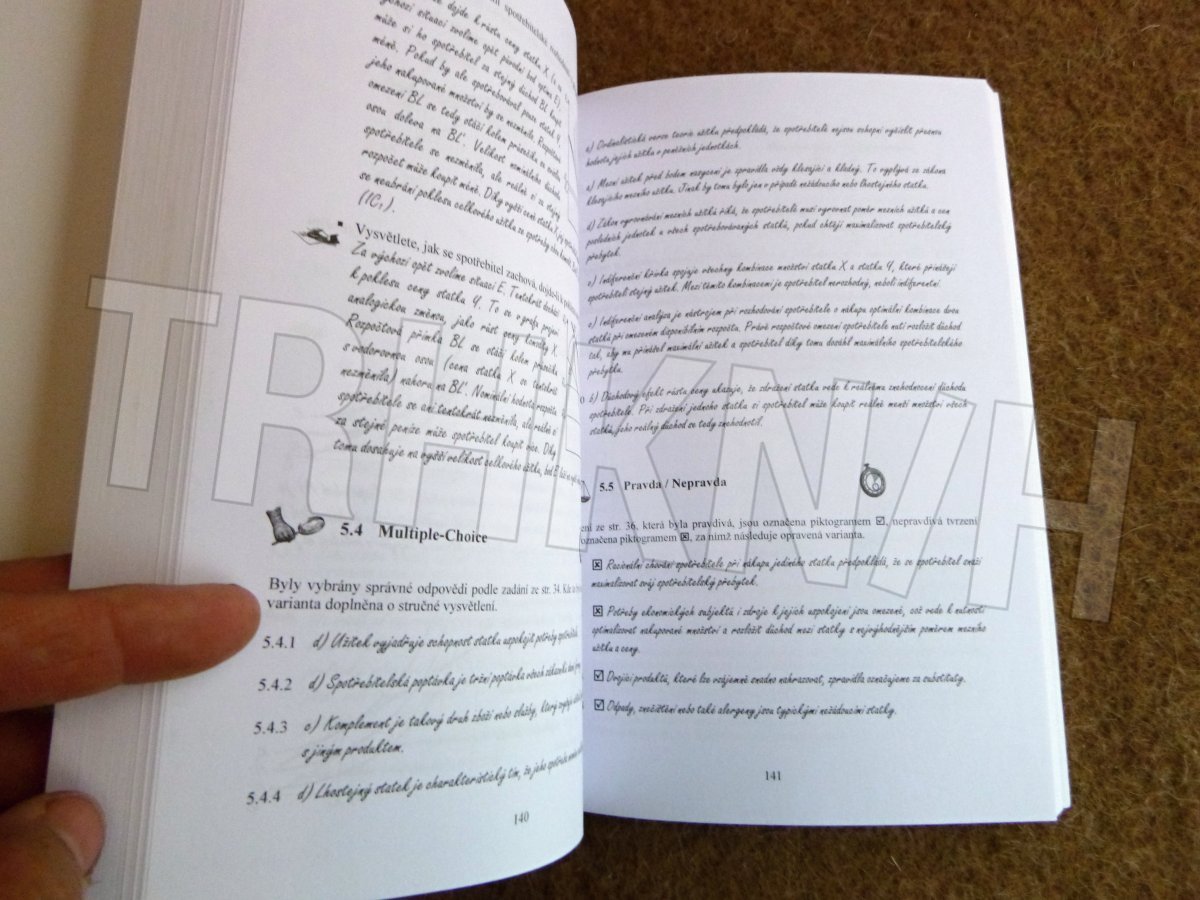 spotřebitelské
dojde k růstu ceny statku X
situaci zvolíme opět původní bod optima E),
může si ho spotřebitel za stejný důchod BL koupit
méně. Pokud by ale spotřebovával pouze statek Y,
jeho nakupované množství by se nezměnilo. Rozpočtové
omezení BL se tedy otáčí kolem průsečíku se svislou
osou doleva na BL'. Velikost nominálního důchodu
spotřebitele se nezměnila, ale reálně si za stejný
rozpočet může koupit méně. Díky vyšší ceně statku X
se neubrání poklesu celkového užitku ze spotřeby
(IC₁).
Vysvětlete, jak se spotřebitel zachová, dojde-li k
Za výchozí opět zvolíme situaci E. Tentokrát dochází
k poklesu ceny statku Y. To se v grafu projeví
analogickou změnou, jako růst ceny X.
Rozpočtová přímka BL se otáčí kolem průsečíku
s vodorovnou osou (cena statku X se tentokrát
nezměnila) nahoru na BL'. Nominální hodnota rozpočtu
spotřebitele se ani tentokrát nezměnila, ale reálně si
za stejné peníze může spotřebitel koupit více. Díky
tomu dosahuje na vyšší velikost celkového užitku, bod
5.4 Multiple-Choice
Byly vybrány správné odpovědi podle zadání ze str. 34.
varianta doplněna o stručné vysvětlení.
5.4.1 d) Užitek vyjadřuje schopnost statku uspokojit potřeby
5.4.2 d) Spotřebitelská poptávka je tržní poptávka všech zákazníků
5.4.3 c) Komplement je takový druh zboží nebo služby, který
s jiným produktem.
5.4.4 d) Lhostejný statek je charakteristický tím, že jeho spotřeba
140
Ordinalistická verze teorie užitku předpokládá, že spotřebitelé nejsou schopni vyčíslit přesnou
hodnotu jejich užitku v peněžních jednotkách.
a) Mezní užitek před bodem nasycení je zpravidla vždy klesající a kladný. To vyplývá ze zákona
klesajícího mezního užitku. Jinak by tomu bylo jen v případě nežádoucího nebo lhostejného statku.
d) Zákon vyrovnávání mezních užitků říká, že spotřebitelé musí vyrovnat poměr mezních užitků a cen
posledních jednotek u všech spotřebovávaných statků, pokud chtějí maximalizovat spotřebitelský
přebytek.
c) Indiferenční křivka spojuje všechny kombinace množství statku X a statku Y, které přinášejí
spotřebiteli stejný užitek. Mezi těmito kombinacemi je spotřebitel nerozhodný, neboli indiferentní.
c) Indiferenční analýza je nástrojem při rozhodování spotřebitele o nákupu optimální kombinace dvou
statků při omezeném disponibilním rozpočtu. Právě rozpočtové omezení spotřebitele nutí rozložit důchod
tak, aby mu přinášel maximální užitek a spotřebitel díky tomu dosáhl maximálního spotřebitelského
přebytku.
b) Důchodový efekt růstu ceny ukazuje, že zdražení statku vede k reálnému znehodnocení důchodu
spotřebitele. Při zdražení jednoho statku si spotřebitel může koupit reálně menší množství všech
statků, jeho reálný důchod se tedy znehodnotil.
5.5 Pravda / Nepravda
ze str. 36, která byla pravdivá, jsou označena piktogramem ☑, nepravdivá tvrzení
označena piktogramem ☒, za nímž následuje opravená varianta.
☒ Racionální chování spotřebitele při nákupu jediného statku předpokládá, že se spotřebitel snaží
maximalizovat svůj spotřebitelský přebytek.
☒ Potřeby ekonomických subjektů i zdroje k jejich uspokojení jsou omezené, což vede k nutnosti
optimalizovat nakupované množství a rozložit důchod mezi statky s nejvýhodnějším poměrem mezního
užitku a ceny.
☑ Dvojici produktů, které lze vzájemně snadno nahrazovat, zpravidla označujeme za substituty.
☑ Odpady, znečištění nebo také alergeny jsou typickými nežádoucími statky.
141
TRHKNIH